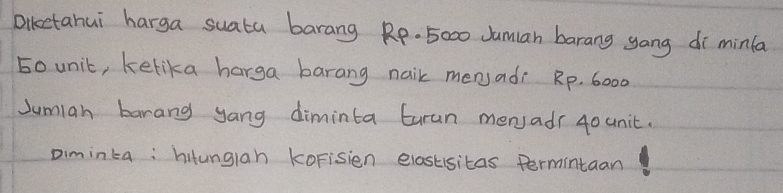 Diketahui harga suatu barang Rp. 5000 Jumlah barang yang di minta
50 unit, ketika harga barang naik menjadi Rp. 6000
Jumlah barang yang diminta turun menjadi 40 unit.
Diminta : hitunglah kofisien elastisitas Permintaan !